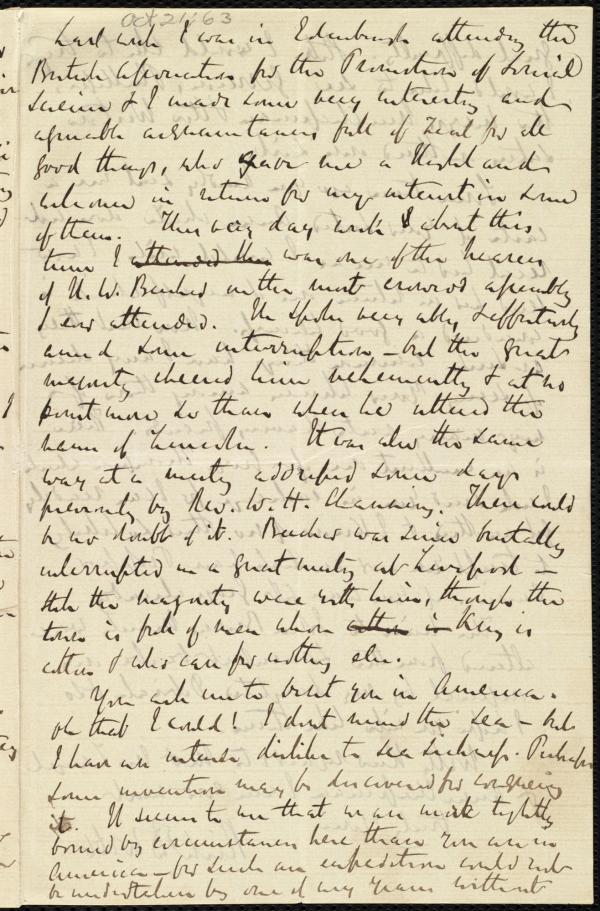 Oct 21/63
Last week I was in Edinburgh attending the
British Association for the Promotion of Social
Science & I made some very interesting and
agreeable acquaintances full of zeal for all
good things, who gave me a Highland
welcome in return for my interest in some
of them. This very day week & about this
time I attended the was one of the hearers
of H. W. Beecher in the most crowded assembly
I ever attended. He spoke very ably & effectively
amid some interruption – but the great
majority cheered him vehemently & at no
point more so than when he uttered the
name of Lincoln. It was also the same
way at a meeting addressed some days
previously by Rev. W. H. Channing. There could
be no doubt of it. Beecher was since brutally
interrupted in a great meeting at Liverpool –
still the majority were with him, though the
town is full of men whose cotton is King is
cotton & who care for nothing else.
You ask me to visit you in America.
Oh that I could! I don't mind the sea – but
I have an intense dislike to sea sickness. Perhaps
some invention may be discovered for conquering
it. It seems to me that we are more tightly
bound by circumstances here than you are in
America – for such an expedition could not
be undertaken by one of my years without